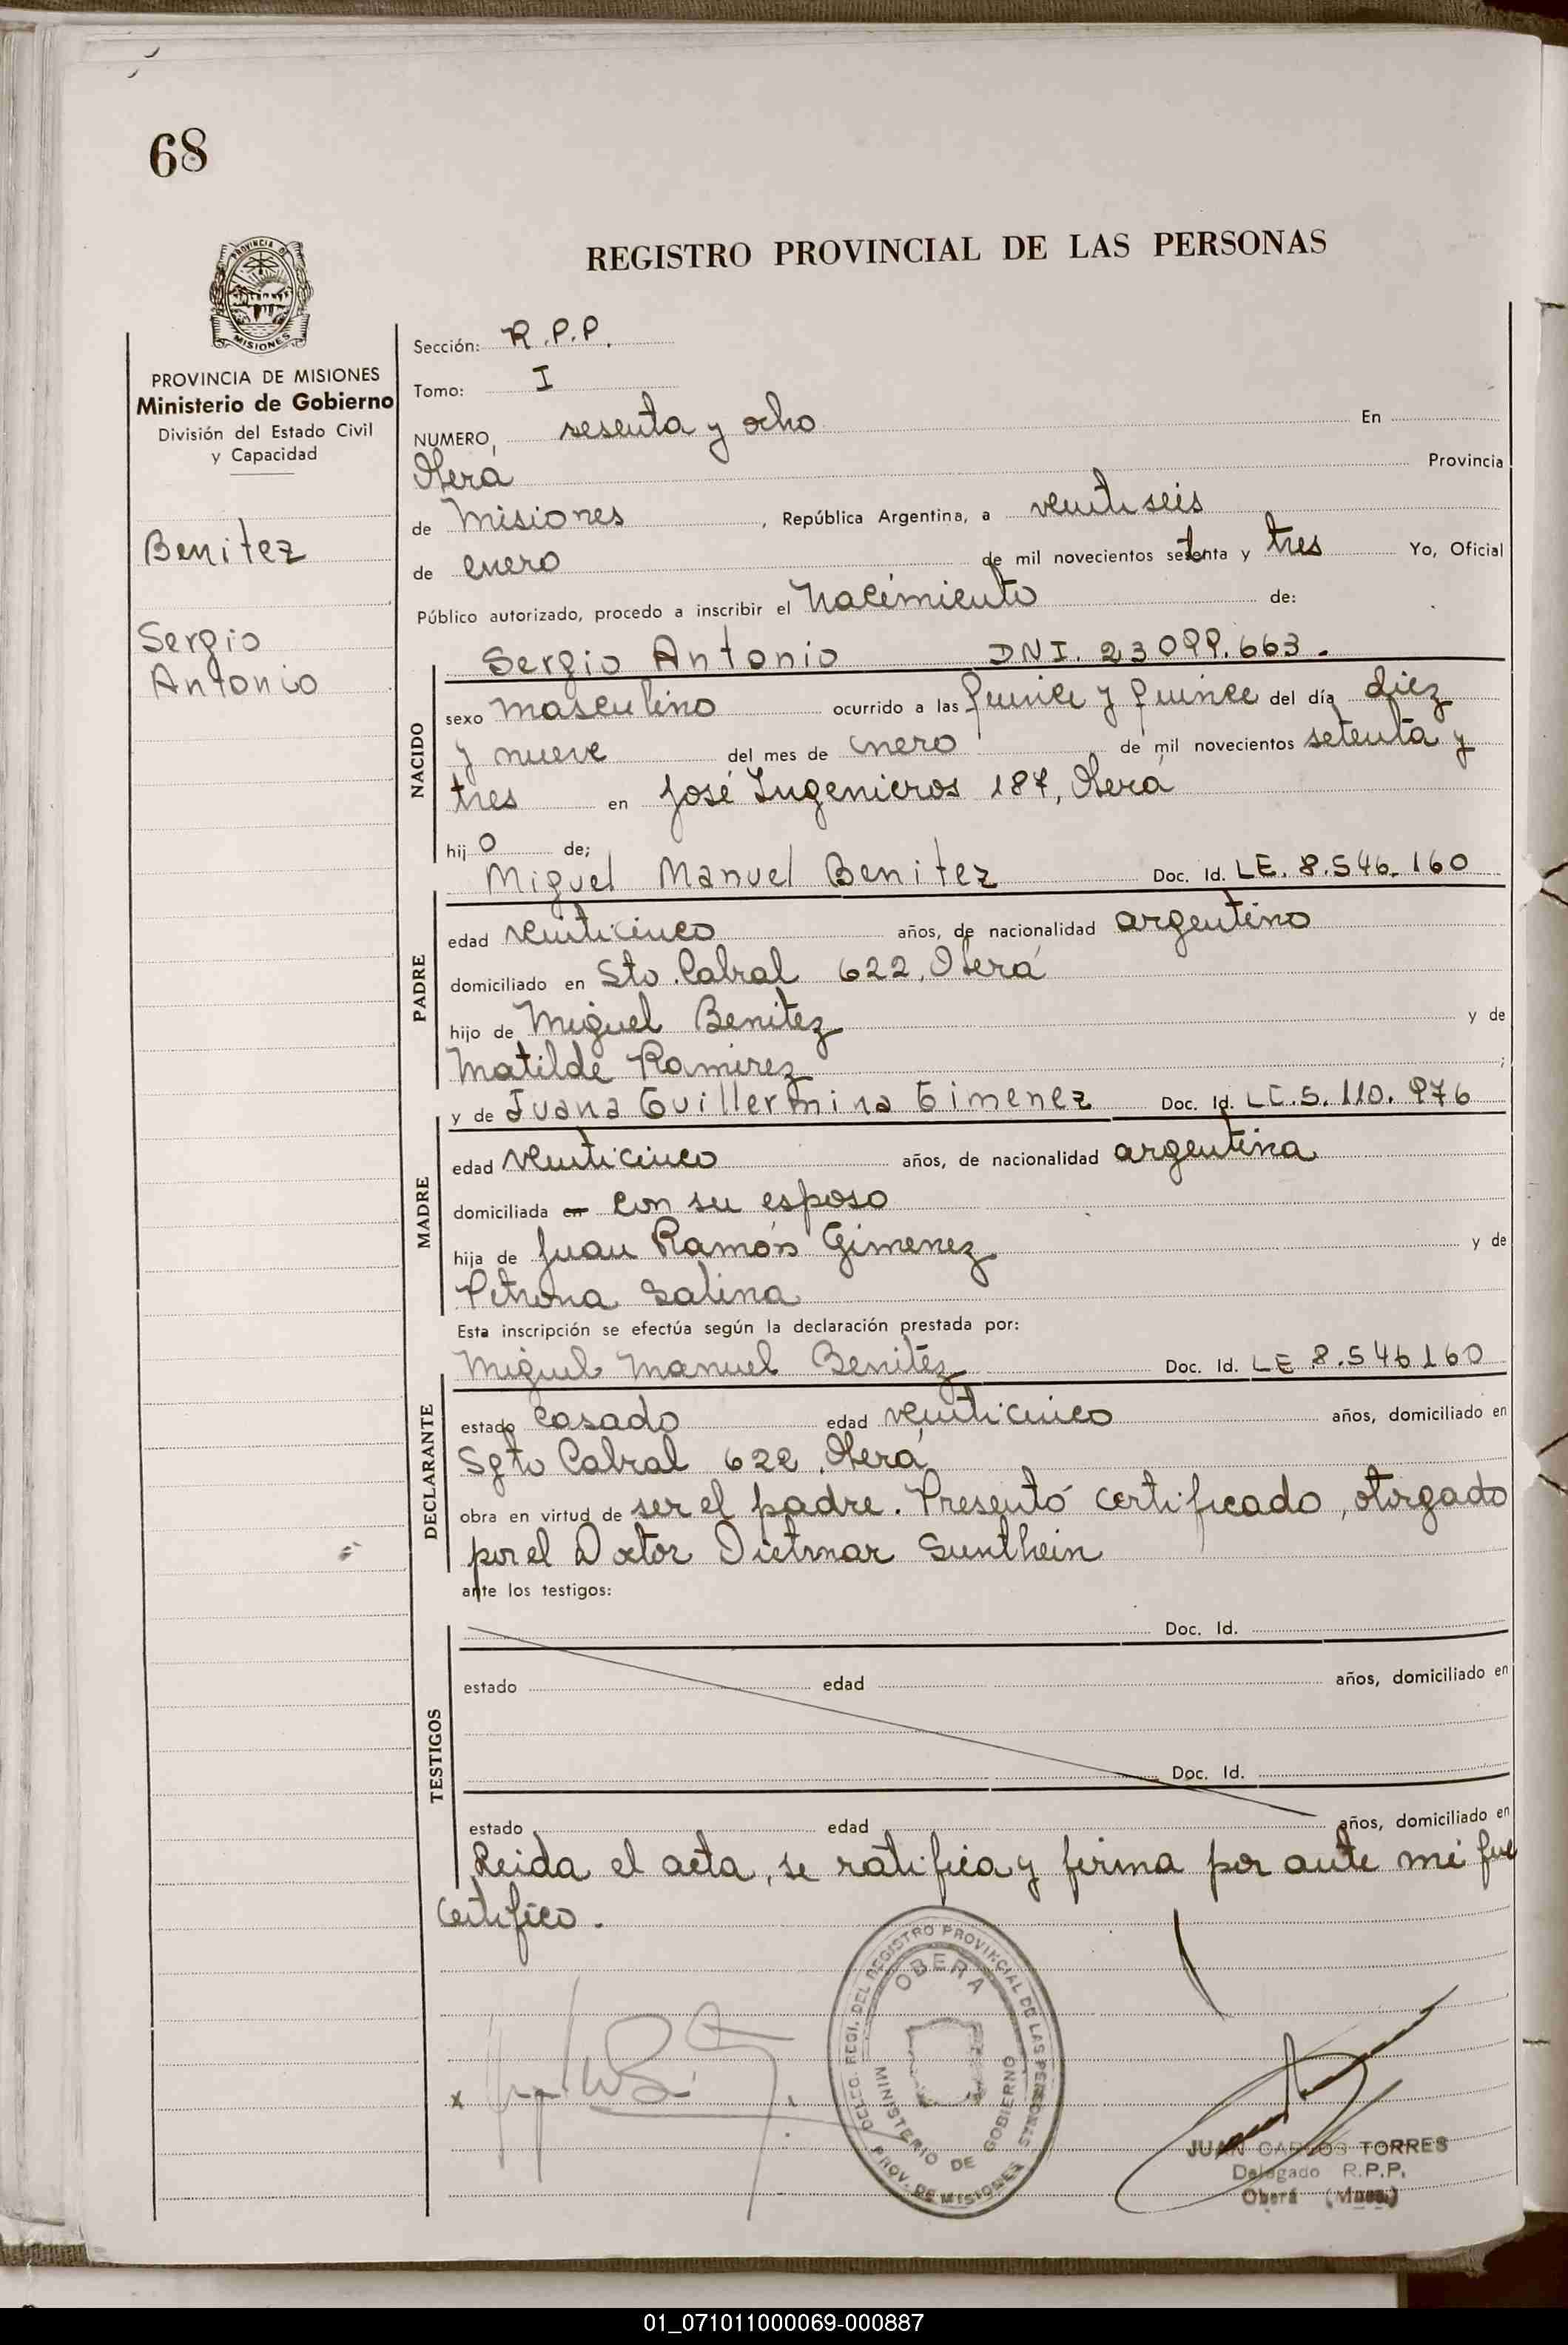 68
PROVINCIA DE
MISIONES
PROVINCIA DE MISIONES
Ministerio de Gobierno
División del Estado Civil
y Capacidad
Benitez
Sergio
Antonio
REGISTRO PROVINCIAL DE LAS PERSONAS
Sección: R.P.P.
Tomo: I
NUMERO, sesenta y ocho En
Oberá Provincia
de Misiones, República Argentina, a veintiseis
de enero de mil novecientos setenta y tres Yo, Oficial
Público autorizado, procedo a inscribir el Nacimiento de:
Sergio Antonio DNI. 23099.663.
NACIDO
sexo masculino ocurrido a las quince y quince del día diez
y nueve del mes de enero de mil novecientos setenta y
tres en José Ingenieros 187, Oberá
hijo de;
Miguel Manuel Benitez Doc. Id. LE. 8.546.160
PADRE
edad veinticinco años, de nacionalidad argentino
domiciliado en Sto. Cabral 622, Oberá
hijo de Miguel Benitez y de
Matilde Ramirez;
y de Juana Guillermina Gimenez Doc. Id. LC.5.110.976
MADRE
edad veinticinco años, de nacionalidad argentina
domiciliada en con su esposo
hija de Juan Ramón Gimenez y de
Petrona Salina
Esta inscripción se efectúa según la declaración prestada por:
Miguel Manuel Benitez Doc. Id. LE 8.546160
DECLARANTE
estado casado edad veinticinco años, domiciliado en
Sgto Cabral 622, Oberá
obra en virtud de ser el padre. Presentó certificado, otorgado
por el Doctor Dietmar Sunthein
ante los testigos:
TESTIGOS
Doc. Id.
estado edad años, domiciliado en
Doc. Id.
estado edad años, domiciliado en
Leida el acta, se ratifica y firma por ante mi que
certifico.
x
DELEG. REGI. DEL REGISTRO PROVINCIAL DE LAS PERSONAS
OBERA
MINISTERIO DE GOBIERNO
PROV. DE MISIONES
JUAN CARLOS TORRES
Delegado R.P.P.
Oberá (Mnes.)
01_071011000069-000887